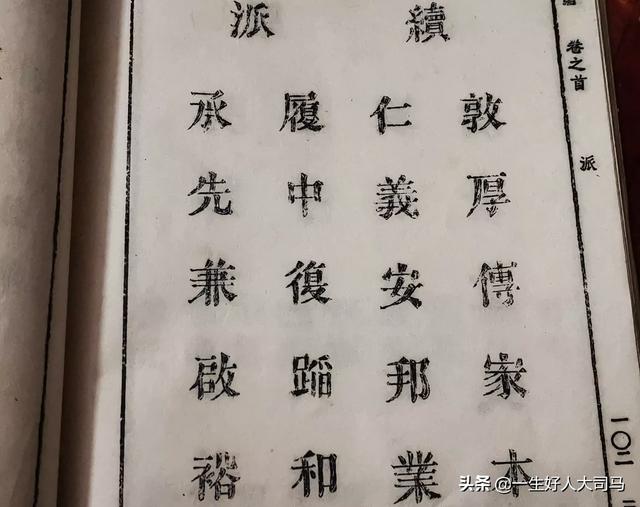 續派
敦厚傳家本
仁義安邦業
履中復蹈和
承先兼啟裕
卷之首
派
一〇二
头条 @一生好人大司马